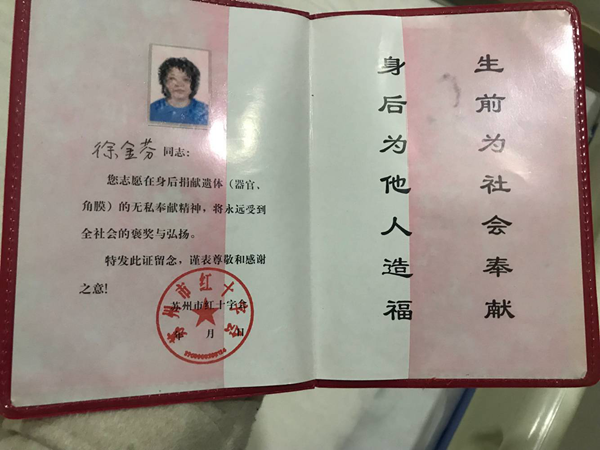 徐金芬 同志:
您志愿在身后捐献遗体（器官、
角膜）的无私奉献精神，将永远受到
全社会的褒奖与弘扬。
特发此证留念，谨表尊敬和感谢
之意！
苏州市红十字会
年 月 日
苏州市红十字会
生前为社会奉献
身后为他人造福